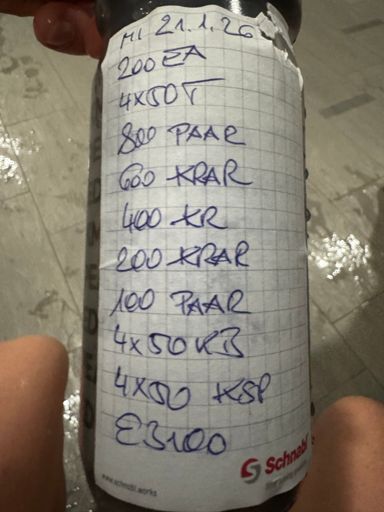 MI 21.1.26
200 EA
4x50 T
800 PAAR
600 KRAR
400 KR
200 KRAR
100 PAAR
4x50 KB
4x50 KSP
E3100
www.schnabl.works
Schnabl